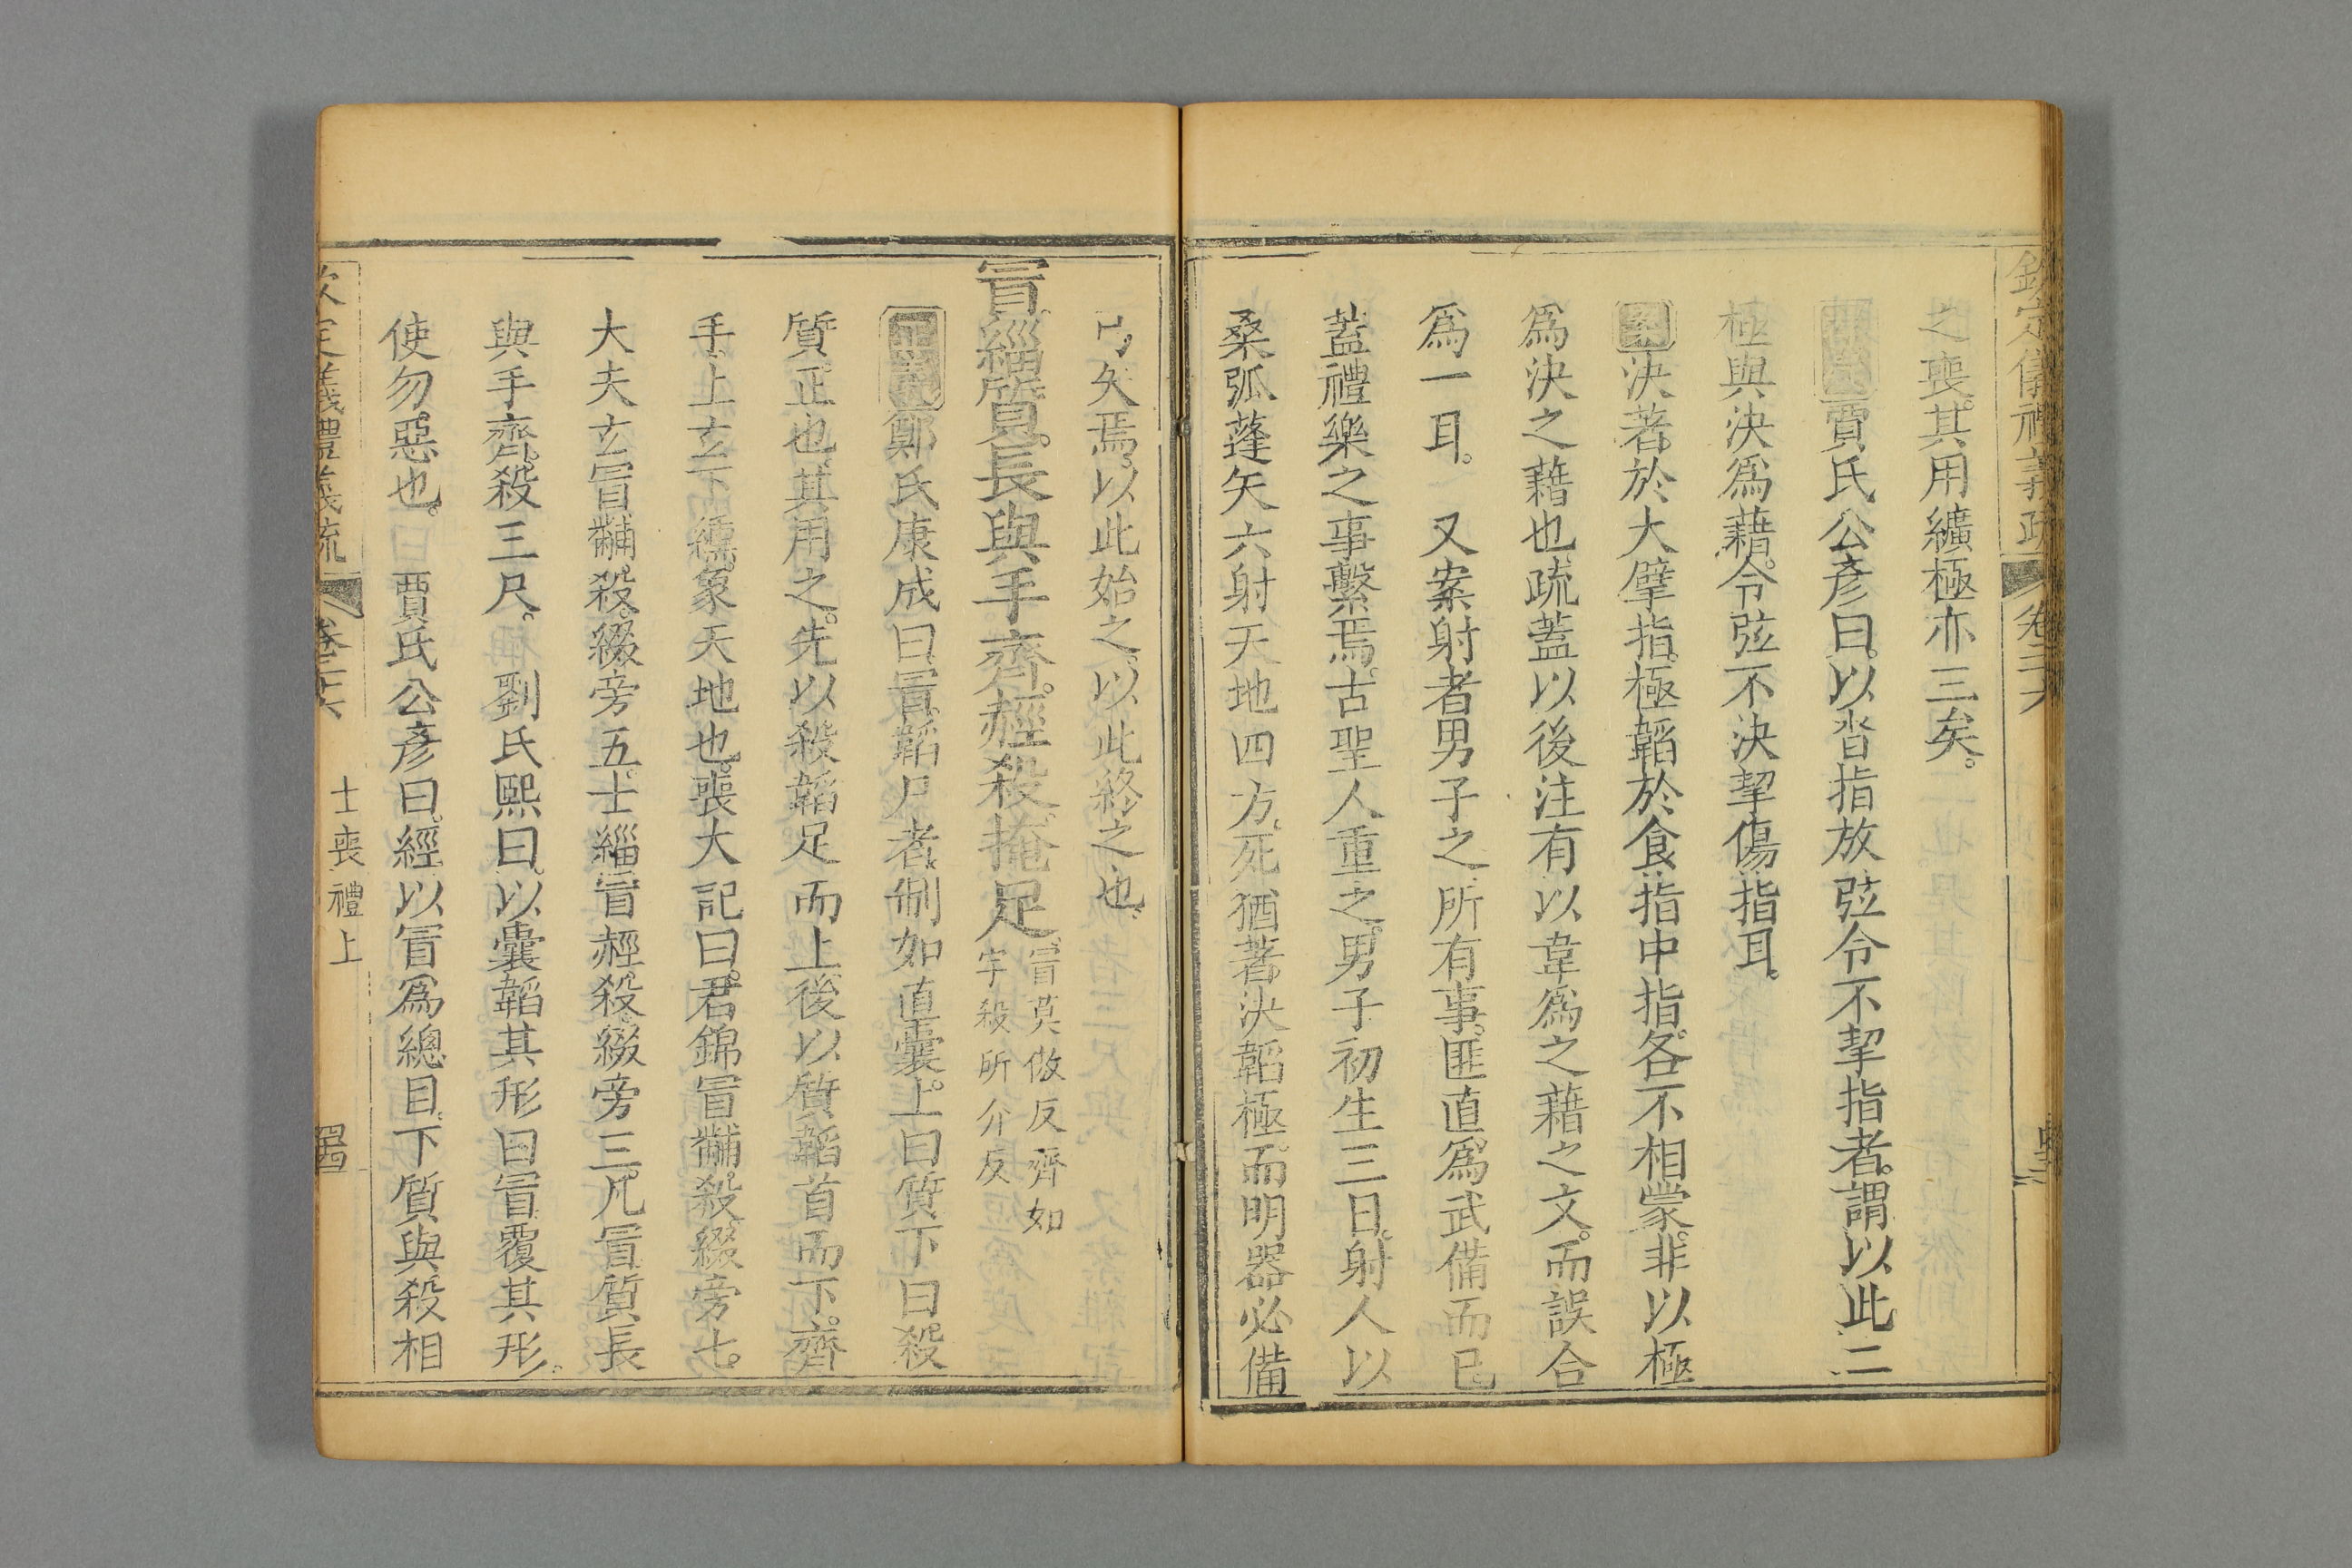 欽定儀禮義疏 卷二十六
之喪其用纊極亦三矣。
賈氏公彥曰。以沓指放弦令不挈指者。謂以此二
極與決爲藉。令弦不決挈傷指耳。
案決著於大擘指。極韜於食指中指。各不相蒙。非以極
爲決之藉也。疏蓋以後注有以韋爲之藉之文。而誤合
爲一耳。 又案射者男子之所有事。匪直爲武備而已
蓋禮樂之事繫焉。古聖人重之。男子初生三日。射人以
桑弧蓬矢六射天地四方。死猶著決韜極。而明器必備
弓矢焉。以此始之。以此終之也。
冒緇質。長與手齊。䞓殺。掩足。冒莫倣反齊如
字殺所介反
正義鄭氏康成曰。冒。韜尸者。制如直囊。上曰質。下曰殺。
質。正也。其用之。先以殺韜足而上。後以質韜首而下。齊
手。上玄下纁。象天地也。喪大記曰。君錦冒黼殺。綴旁七。
大夫玄冒黼殺。綴旁五。士緇冒䞓殺。綴旁三。凡冒質長
與手齊。殺三尺。 劉氏熙曰。以囊韜其形曰冒。覆其形。
使勿惡也。 賈氏公彥曰。經以冒爲總目。下質與殺相
欽定儀禮義疏 卷二十六 士喪禮上 四